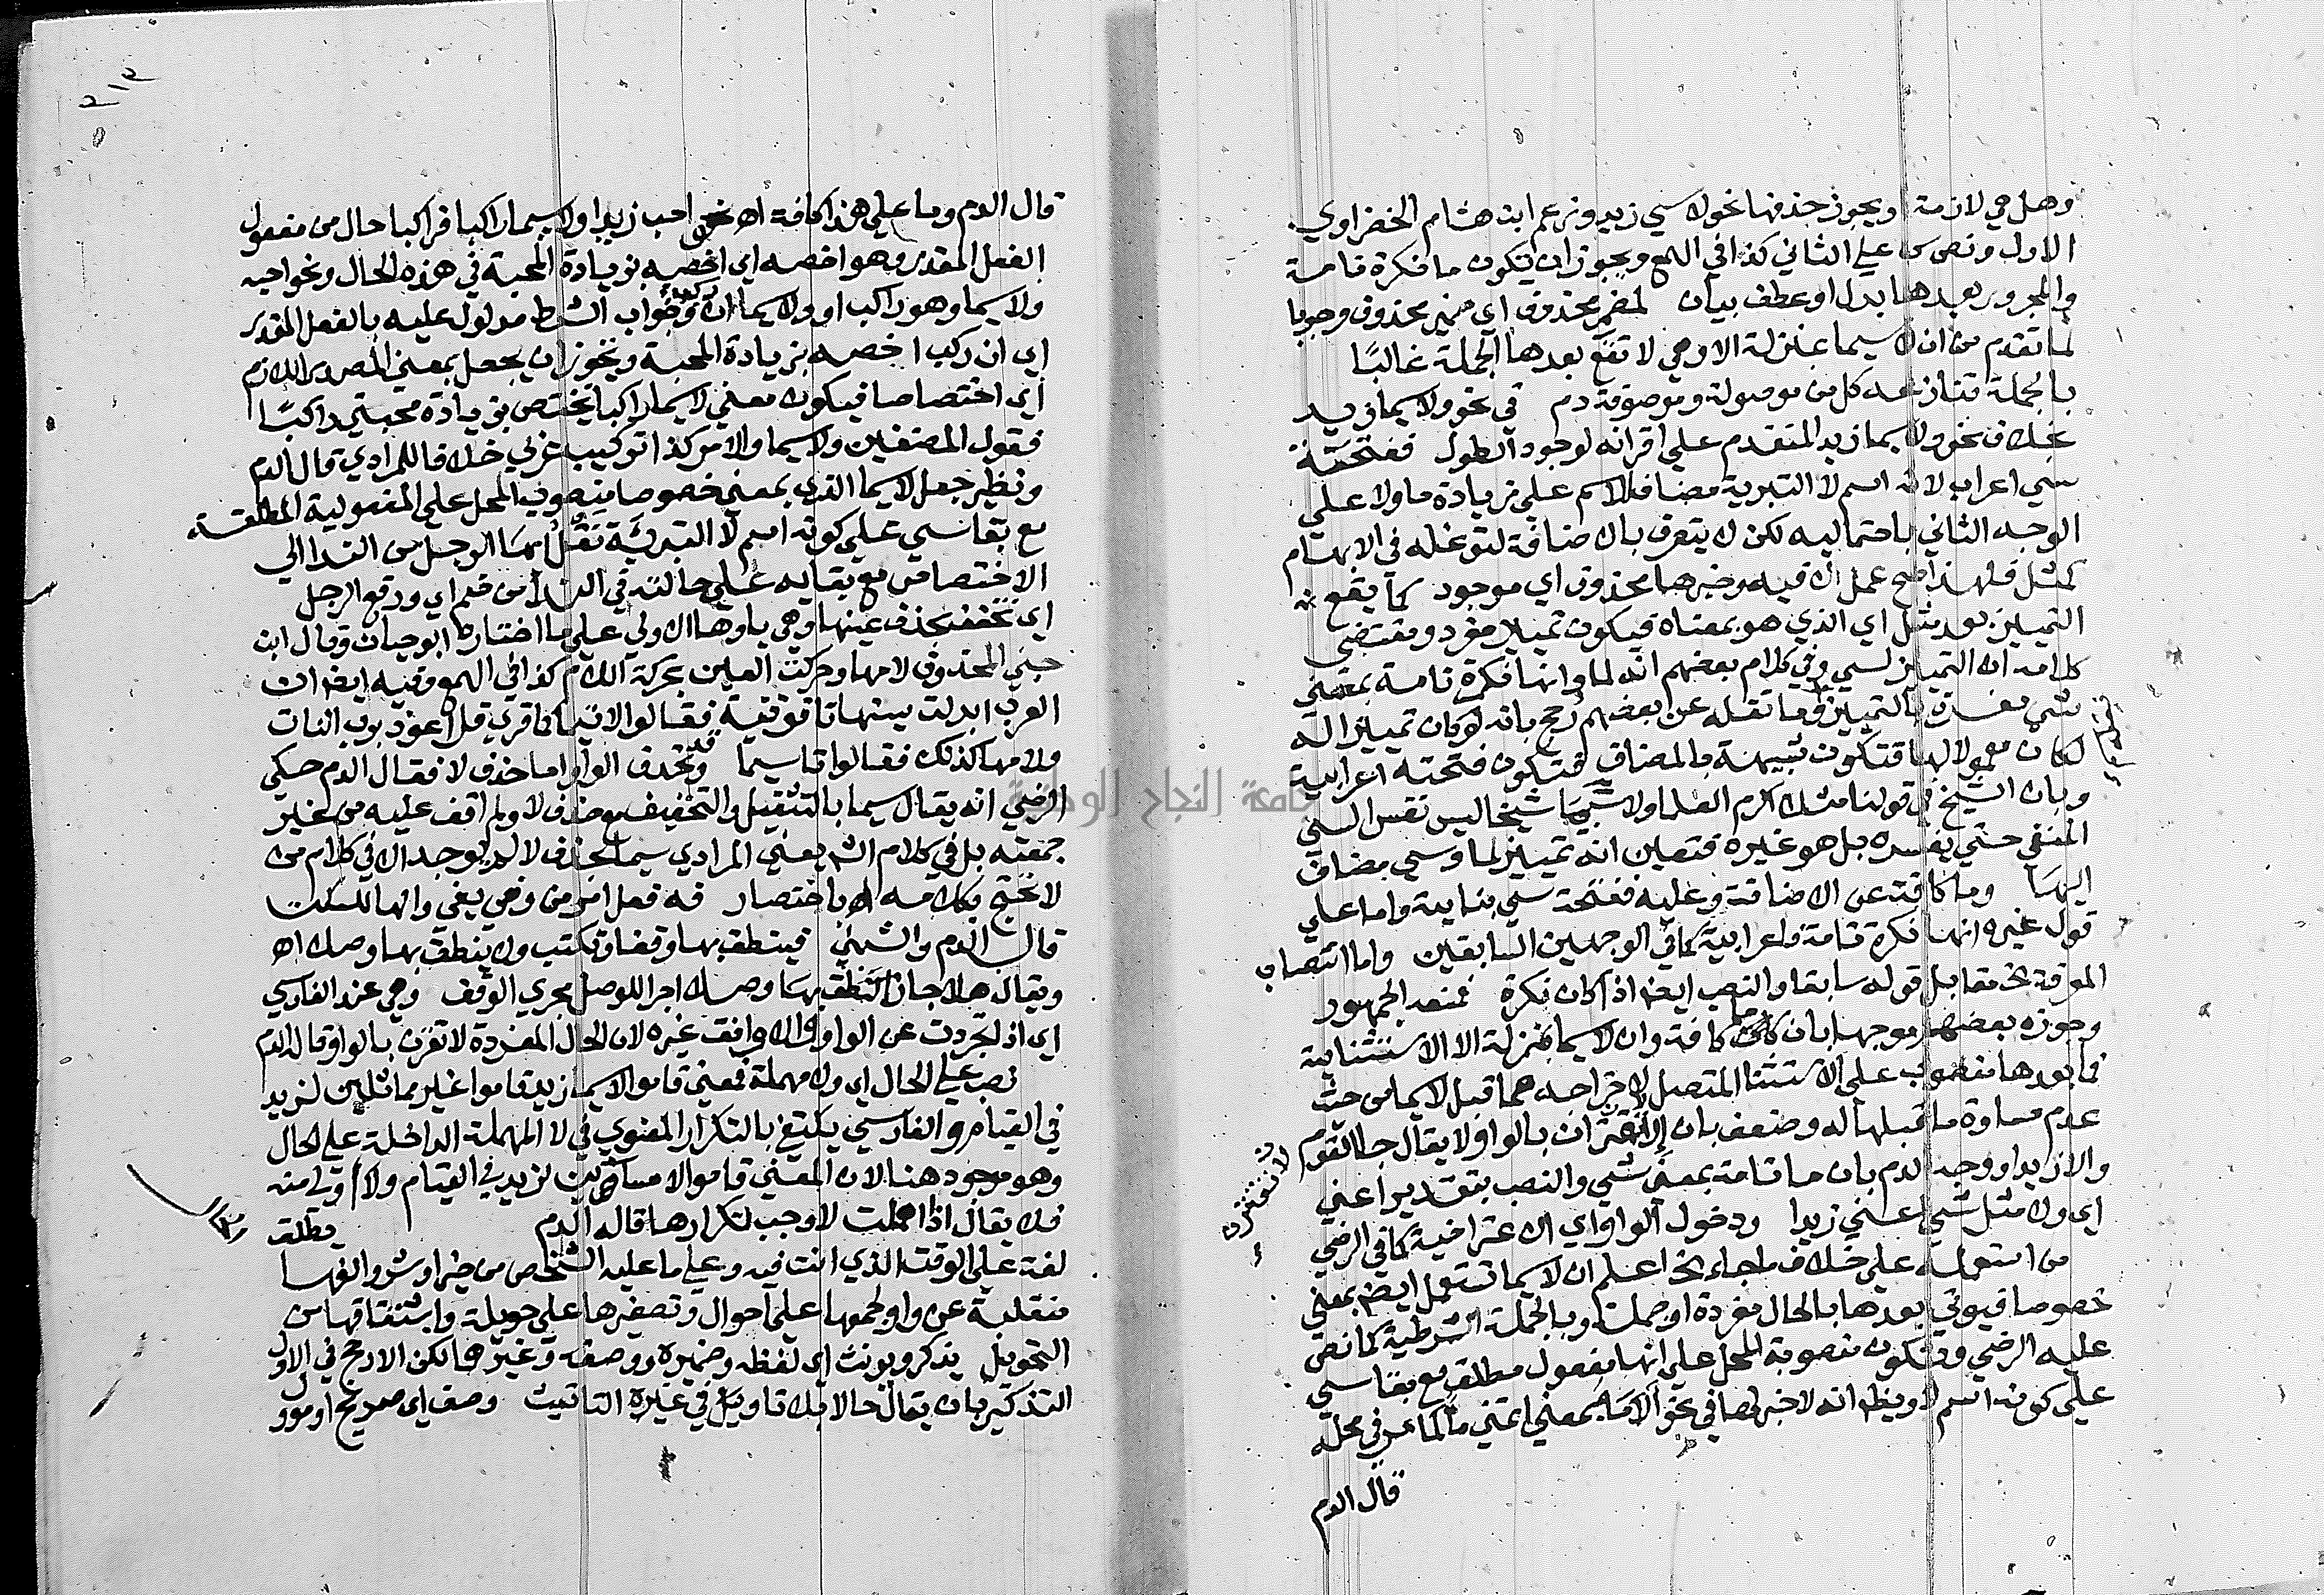 وهل هي لازمة او يجوز حذفها نحو لا سي زيد وزعم ابن هشام الخضراوي
الاول ونص س على الثاني كذا في الهمع ويجوز ان تكون ما نكرة تامة
والمجرور بعدها بدل او عطف بيان لمضمر محذوف اي ضمير محذوف وجوبا
لما تقدم من ان لا سيما بمنزلة الا وهي لا تقع بعدها الجملة غالبًا
بالجملة تنازعه كل من موصولة وموصوفة دم في نحو ولا سيما زيد
بخلاف نحو ولا سيما زيد المتقدم على اقرانه لوجود الطول ففتحة
سي اعراب لانه اسم لا التبرية مضاف للاسم على زيادة ما ولا على
الوجه الثاني باحتماليه لكن لا يتعرف بالاضافة لتوغله في الابهام
كمثل فلهذا صح عمل لا فيه وخبرها محذوف اي موجود كما يقع
التمييز بعد مثل اي الذي هو بمعناه فيكون تمييز مفرد ومقتضى
كلامه ان التمييز لسي وفي كلام بعضهم انه لما وانها نكرة تامة بمعنى
شي مفسرة بالتمييز وما نقله عن بعضهم رجح بانه لو كان تمييزا له
لكان معمولا لها فتكون شبيهة بالمضاف فتكون فتحته اعرابية
وبان الشيخ في قولنا مثلا اكرم العلما ولا سيما شيخا ليس نفس السي
المنفي حتي يفسره بل هو غيره فتعين انه تمييز لما وسي مضاف
اليها وما كافة عن الاضافة وعليه ففتحة سي بنايية واما على
قول غيره انها نكرة تامة فاعرابية كما في الوجهين السابقين واما انتصاب
المعرفة نحو مقابل قوله سابقا والنصب ايضا اذا كان نكرة فمنعه الجمهور
وجوزه بعضهم موجها بان ما كافة وان لا سيما بمنزلة الا الاستثنايية
فما بعدها منصوب على الاستثنا المتصل لاخراجه عما قبل لا سيما من حيث
عدم مساواة ما قبلها له وضعف بان الا لا تقترن بالواو لا يقال جا القوم
والا زيدا ووجه الدم بان ما تامة بمعنى شي والنصب بتقدير اعني
اي ولا مثل شي اعني زيدا ودخول الواو اي الاعتراضية كما في الرضي
من استعمله على خلاف ما جاء الخ اعلم ان لا سيما تستعمل ايض بمعنى
خصوصا فيوتى بعدها بالحال مفردة او جملة وبالجملة الشرطية كما نص
عليه الرضي وتكون منصوبة المحل على انها مفعول مطلق مع بقا سي
على كونه اسم لا ويظهر انه لا خبر لها في نحو الا ما بمعنى اتمنى ما لما مر في محله
قال الدم
قال الدم وما على هذا كافة اهـ نحو احب زيدا ولا سيما راكبا فراكبا حال من مفعول
الفعل المقدر وهو اخصه اي اخصه بزيادة المحبة في هذه الحال ونحو احبه
ولا سيما وهو راكب او ولا سيما ان ركب وجواب الشرط مدلول عليه بالفعل المقدر
اي ان ركب اخصه بزيادة المحبة ويجوز ان يجعل بمعنى المصدر اللازم
اي اختصاصا فيكون معنى لا سيما راكبا يختص بزيادة محبتي راكبًا
فقول المصنفين ولا سيما والامر كذا تركيب عربي خلافا للمرادي قال الدم
ونظير جعل لا سيما الذي بمعنى خصوصا منصوب المحل على المفعولية المطلقة
مع بقا سي على كونه اسم لا التبرئة نقل ايها الرجل من الندا الى
الاختصاص مع بقايه على حالته في الندا من ضم اي ورفع الرجل
اي تخفف بحذف عينها وهي ياوها الاولى على ما اختاره ابو حيان وقال ابن
جني المحذوف لامها وحركت العين بحركة اللام كذا في الهمع وفيه ايض ان
العرب ابدلت سينها تا فوقية فقالوا لا تيما كما قري قل اعوذ برب النات
ولامها كذلك فقالوا تا سيما وقد تحذف الواو اما حذف لا فقال الدم حكي
الرضي انه يقال سيما بالتثقيل والتخفيف مع حذف لا ولم اقف عليه من غير
جهته بل في كلام الشر يعني المرادي سيما بحذف لا لم يوجد الا في كلام من
لا يحتج بكلامه اهـ باختصار فه فعل امر من وفى يفي والها للسكت
قال الدم والشمني فينطق بها وقفا وتكتب ولا ينطق بها وصلا اهـ
ويقال هلا جاز النطق بها وصلا اجرا للوصل مجرى الوقف وهي عند الفارسي
اي اذا تجردت عن الواو والا وافق غيره لان الحال المفردة لا تقترن بالواو قاله الدم
نصب على الحال اي ولا مهملة فمعنى قاموا لا سيما زيد قاموا غير مماثلين لزيد
في القيام والفارسي يكتفي بالتكرار المعنوي في لا المهملة الداخلة على الحال
وهو موجود هنا لان المعنى قاموا لا مساوين لزيد في القيام ولا اولى منه
فلا يقال اذا اهملت لا وجب تكرارها قاله الدم يطلق
لغة على الوقت الذي انت فيه وعلى ما عليه الشخص من خير او شر والفها
منقلبة عن واو لجمعها على احوال وتصغيرها على حويلة واشتقاقها من
التحويل يذكر ويونث اي لفظه وضميره ووصفه وغيرها لكن الارجح في الاول
التذكير بان يقال حال بلا تا ويل في غيره التانيث وصف اي صريح او موول